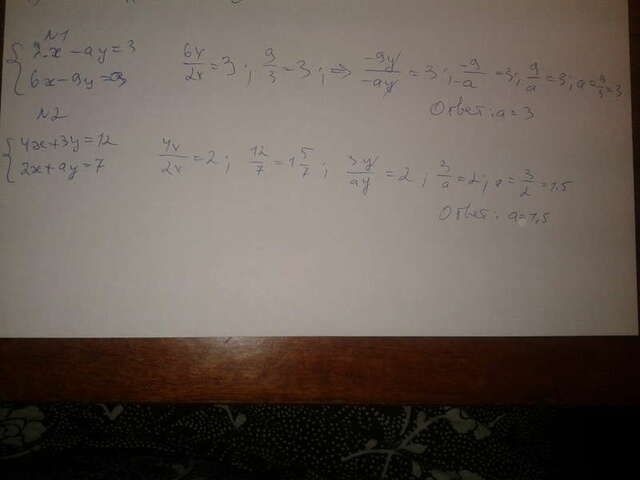 №1
2x - ay = 3
6x - 9y = 9
6x/2x = 3; 9/3 = 3; ⇒ -9y/-ay = 3; -9/-a = 3; 9/a = 3; a = 9/3 = 3
Ответ: a = 3
№2
4x + 3y = 12
2x + ay = 7
4x/2x = 2; 12/7 = 1 5/7; 3y/ay = 2; 3/a = 2; a = 3/2 = 1,5
Ответ: a = 1,5